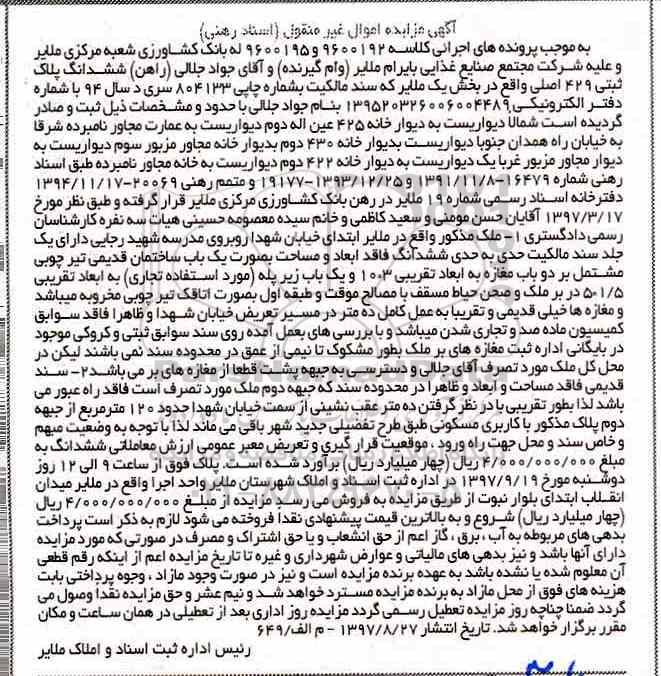 آگهی مزایده اموال غیر منقول (اسناد رهنی)
به موجب پرونده های اجرائی کلاسه ۹۶۰۰۱۹۲ و ۹۶۰۰۱۹۵ له بانک کشاورزی شعبه مرکزی ملایر
و علیه شرکت مجتمع صنایع غذایی بایرام ملایر (وام گیرنده) و آقای جواد جلالی (راهن) ششدانگ پلاک
ثبتی ۴۲۹ اصلی واقع در بخش یک ملایر که سند مالکیت بشماره چاپی ۸۰۴۱۳۳ سری د سال ۹۴ با شماره
دفتر الکترونیکی ۱۳۹۵۲۰۳۲۶۰۰۶۰۰۴۴۸۹ بنام جواد جلالی با حدود و مشخصات ذیل ثبت و صادر
گردیده است شمالا دیواریست به دیوار خانه ۴۲۵ عین اله دوم دیواریست به عمارت مجاور نامبرده شرقا
به خیابان راه همدان جنوبا دیواریست بدیوار خانه ۴۳۰ دوم بدیوار خانه مجاور مزبور سوم دیواریست به
دیوار مجاور مزبور غربا یک دیواریست به دیوار خانه ۴۲۲ دوم دیواریست به خانه مجاور نامبرده طبق اسناد
رهنی شماره ۱۶۴۷۹-
دفترخانه اسناد رسمی شماره ۱۹ ملایر در رهن بانک کشاورزی مرکزی ملایر قرار گرفته و طبق نظر مورخ
۱۳۹۷/۳/۱۷ آقایان حسن مومنی و سعید کاظمی و خانم سیده معصومه حسینی هیات سه نفره کارشناسان
رسمی دادگستری ۱- ملک مذکور واقع در ملایر ابتدای خیابان شهدا روبروی مدرسه شهید رجایی دارای یک
جلد سند مالکیت حدی به حدی ششدانگ فاقد ابعاد و مساحت بصورت یک باب ساختمان قدیمی تیر چوبی
مشتمل بر دو باب مغازه به ابعاد تقریبی ۳*۱۰ و یک باب زیر پله (مورد استفاده تجاری) به ابعاد تقریبی
۱/۵*۵ در بر ملک و صحن حیاط مسقف با مصالح موقت و طبقه اول بصورت اتاقک تیر چوبی مخروبه میباشد
و مغازه ها خیلی قدیمی و تقریبا به عمل کامل ده متر در مسیر تعریض خیابان شهدا و ظاهرا فاقد سوابق
کمیسیون ماده صد و تجاری شدن میباشد و با بررسی های بعمل آمده روی سند سوابق ثبتی و کروکی موجود
در بایگانی اداره ثبت مغازه های بر ملک بطور مشکوک تا نیمی از عمق در محدوده سند نمی باشند لیکن در
محل کل ملک مورد تصرف آقای جلالی و دسترسی به جبهه پشت قطعا از مغازه های بر می باشد ۲- سند
قدیمی فاقد مساحت و ابعاد و ظاهرا در محدوده سند که جبهه دوم ملک مورد تصرف است فاقد راه عبور می
باشد لذا بطور تقریبی با در نظر گرفتن ده متر عقب نشینی از سمت خیابان شهدا حدود ۱۲۰ مترمربع از جبهه
دوم پلاک مذکور با کاربری مسکونی طبق طرح تفضیلی جدید شهر باقی می ماند لذا با توجه به وضعیت مبهم
و خاص سند و محل جهت راه ورود ، موقعیت قرار گیری و تعریض معبر عمومی ارزش معاملاتی ششدانگ به
مبلغ ۴/۰۰۰/۰۰۰/۰۰۰ ریال (چهار میلیارد ریال) برآورد شده است. پلاک فوق از ساعت ۹ الی ۱۲ روز
دوشنبه مورخ ۱۳۹۷/۹/۱۹ در اداره ثبت اسناد و املاک شهرستان ملایر واحد اجرا واقع در ملایر میدان
انقلاب ابتدای بلوار نبوت از طریق مزایده به فروش می رسد مزایده از مبلغ ۴/۰۰۰/۰۰۰/۰۰۰ ریال
(چهار میلیارد ریال) شروع و به بالاترین قیمت پیشنهادی نقدا فروخته می شود لازم به ذکر است پرداخت
بدهی های مربوطه به آب ، برق ، گاز اعم از حق انشعاب و یا حق اشتراک و مصرف در صورتی که مورد مزایده
دارای آنها باشد و نیز بدهی های مالیاتی و عوارض شهرداری و غیره تا تاریخ مزایده اعم از اینکه رقم قطعی
آن معلوم شده یا نشده باشد به عهده برنده مزایده است و نیز در صورت وجود مازاد ، وجوه پرداختی بابت
هزینه های فوق از محل مازاد به برنده مزایده مسترد خواهد شد و نیم عشر و حق مزایده نقدا وصول می
گردد ضمنا چناچه روز مزایده تعطیل رسمی گردد مزایده روز اداری بعد از تعطیلی در همان ساعت و مکان
مقرر برگزار خواهد شد. تاریخ انتشار ۱۳۹۷/۸/۲۷ - م الف/۶۴۹
رئیس اداره ثبت اسناد و املاک ملایر